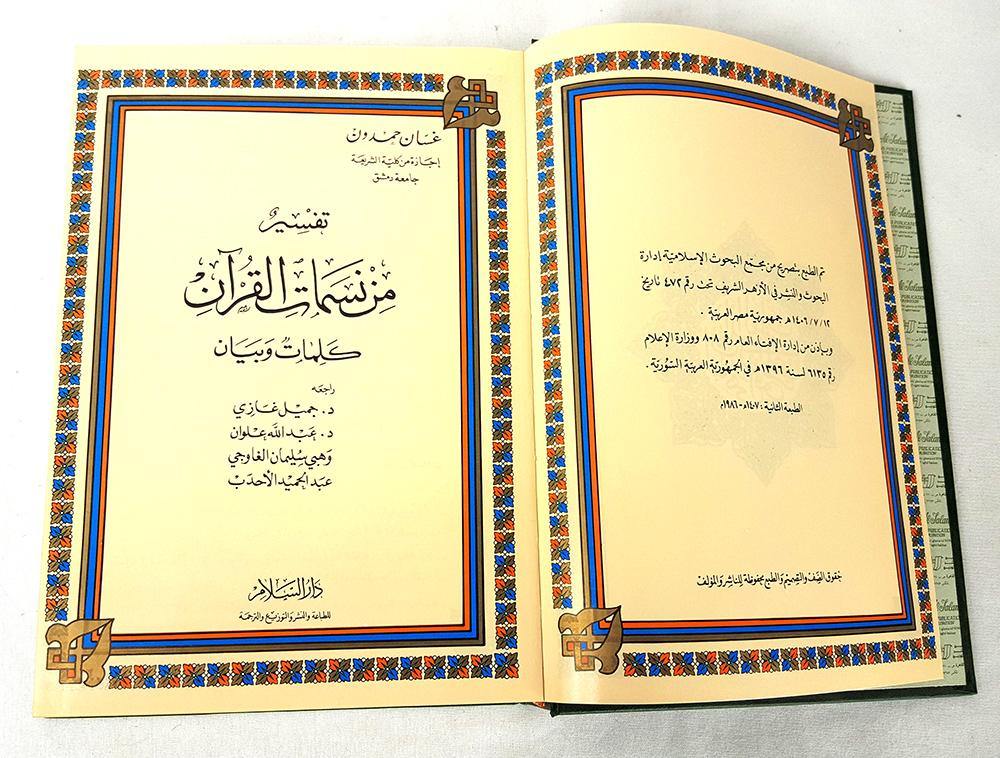 تم الطبع بتصريح من مجمع البحوث الإسلامية إدارة
البحوث والنشر في الأزهر الشريف تحت رقم ٤٧٢ تاريخ
١٤٠٦/٧/١٢هـ جمهورية مصر العربية .
وبإذن من إدارة الإفتاء العام رقم ٨٠٨ ووزارة الإعلام
رقم ٦١٣٥ لسنة ١٣٩٦هـ في الجمهورية العربية السورية .
الطبعة الثانية : ١٤٠٧هـ - ١٩٨٦م
حقوق الصف والتصميم والطبع محفوظة للناشر والمؤلف
غسان حمدون
إجازة من كلية الشريعة
جامعة دمشق
تفسير
من نسمات القرآن
كلمات وبيان
راجعه
د. جميل غازي
د. عبد الله علوان
وهبي سليمان الغاوجي
عبد الحميد الأحدب
دار السلام
للطباعة والنشر والتوزيع والترجمة